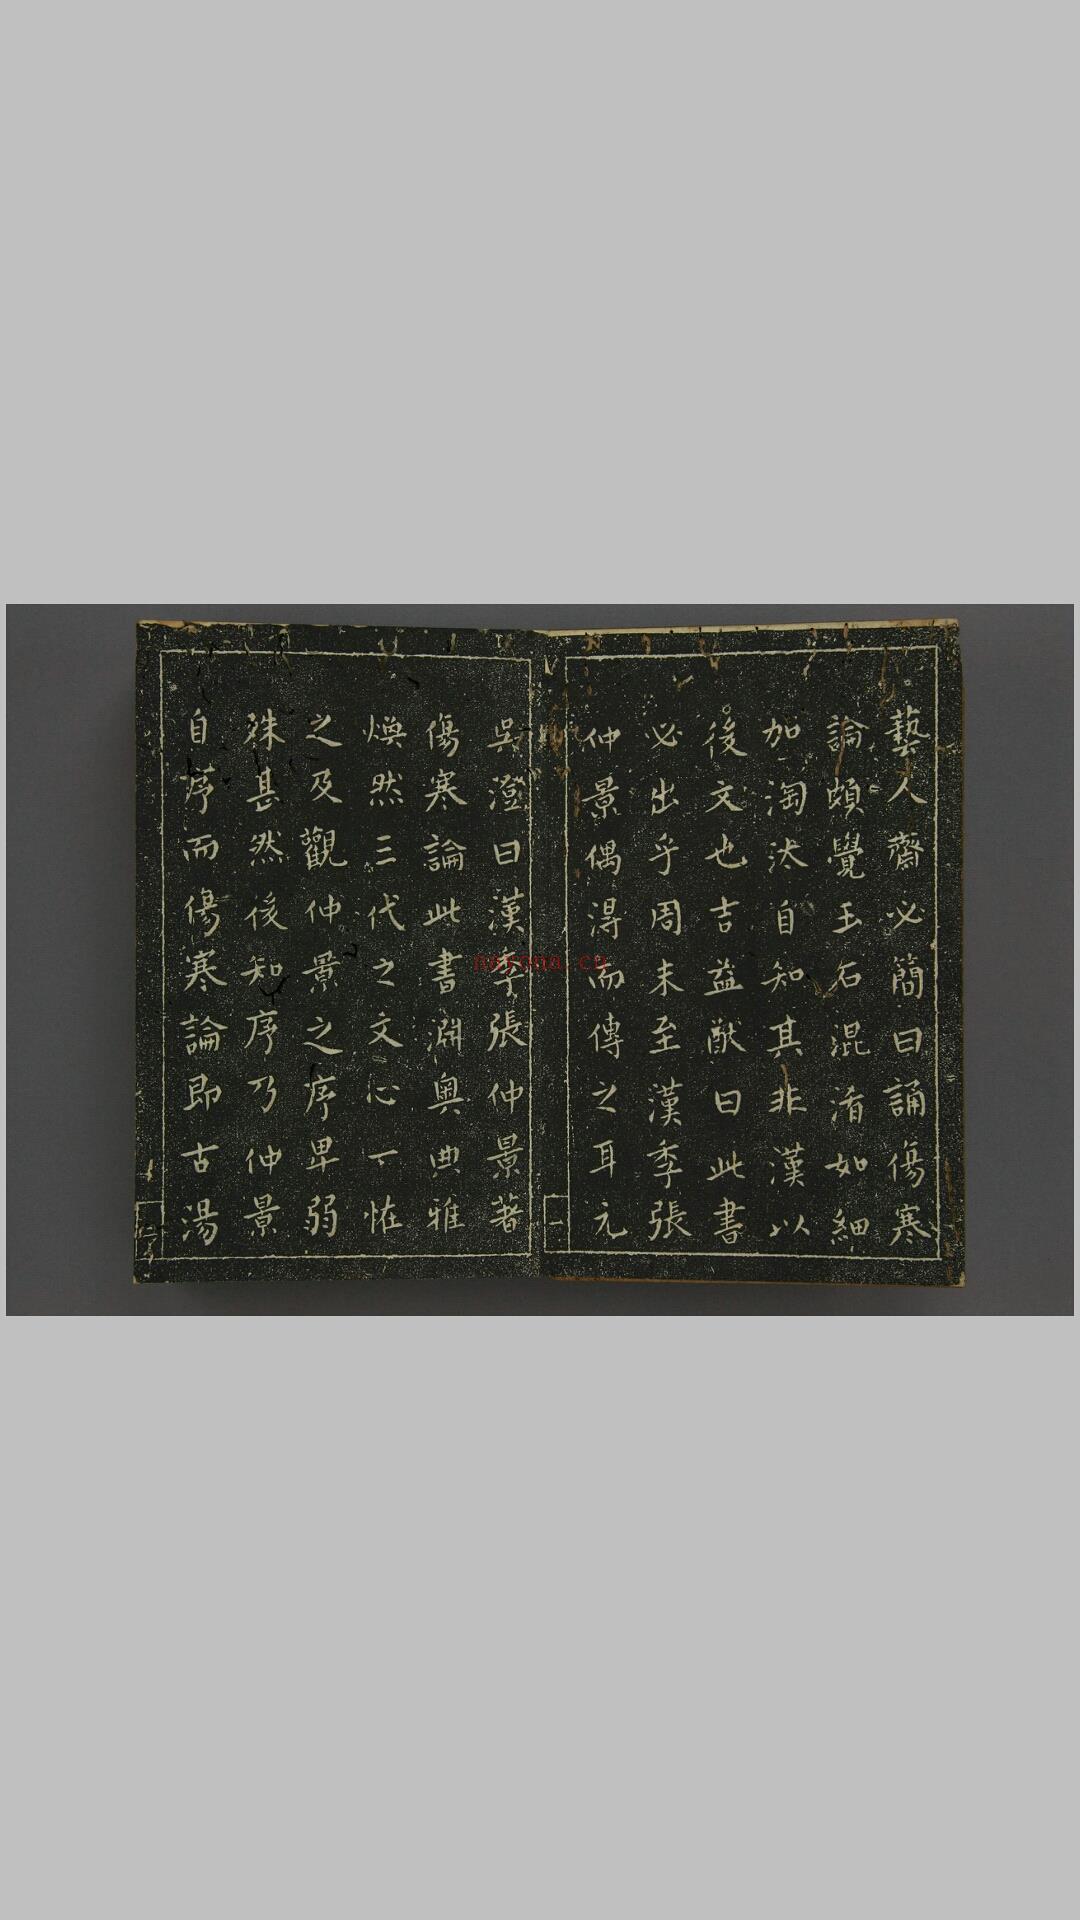 藝人齋必簡曰誦傷寒
論頗覺玉石混淆如細
加淘汰自知其非漢以
後文也吉益猷曰此書
必出乎周末至漢季張
仲景偶淂而傳之耳元
吳澄曰漢季張仲景著
傷寒論此書淵奧典雅
煥然三代之文心一恠
之及觀仲景之序卑弱
殊甚然後知序乃仲景
自序而傷寒論即古湯
一
nayona.cn